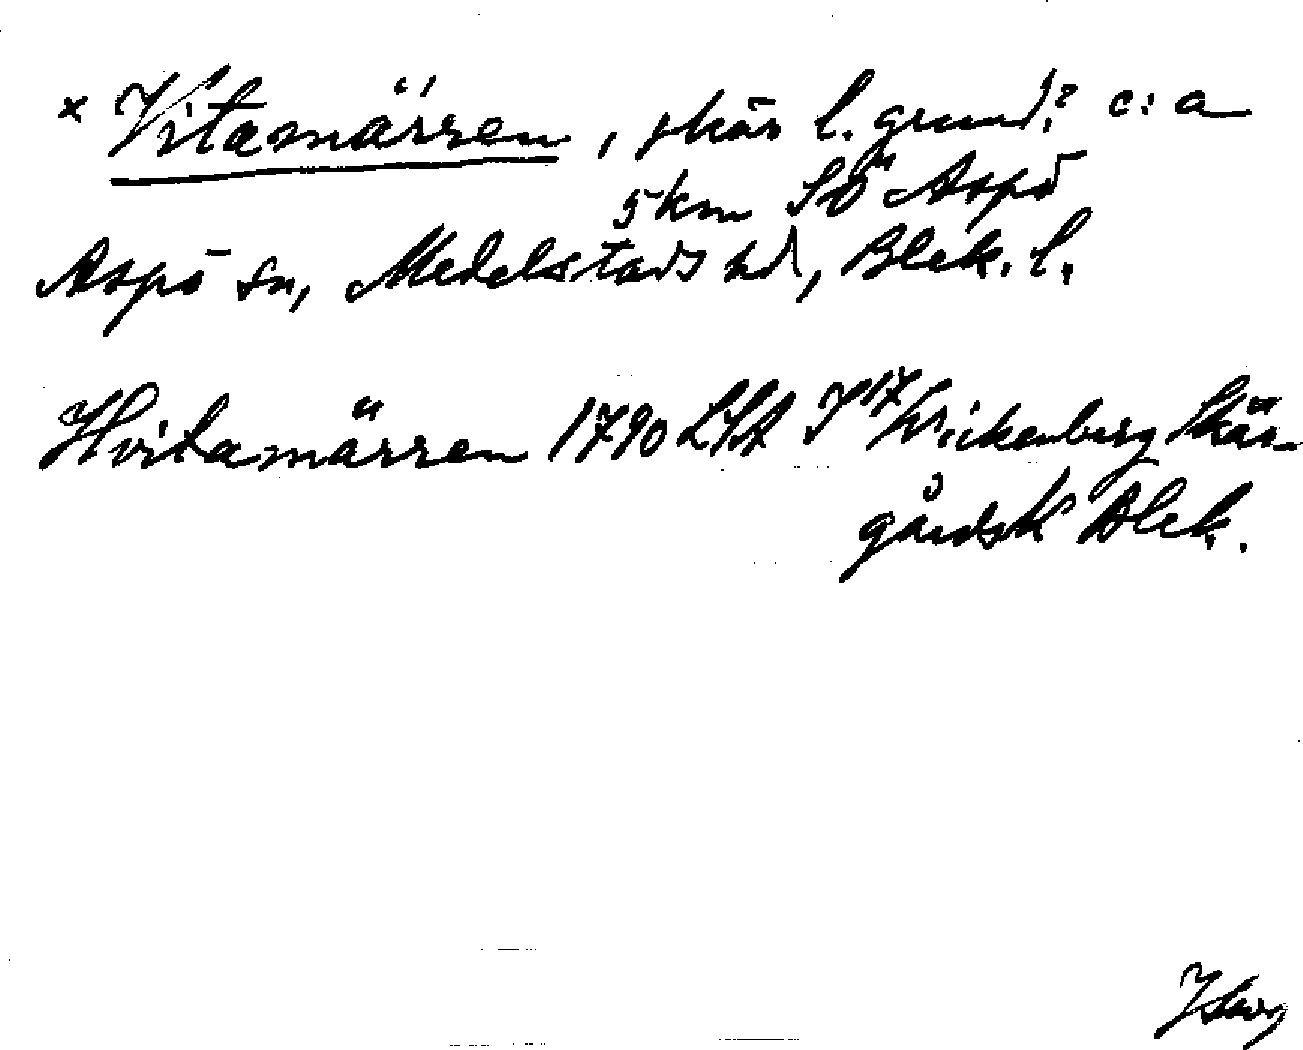 × Vitamärren, skär l. grund? c:a
5 km SÖ Aspö
Aspö sn, Medelstads hd, Blek. l.
Hvitamärren 1790 LSA I 17 Wickenberg Skär-
gårdsk Blek.